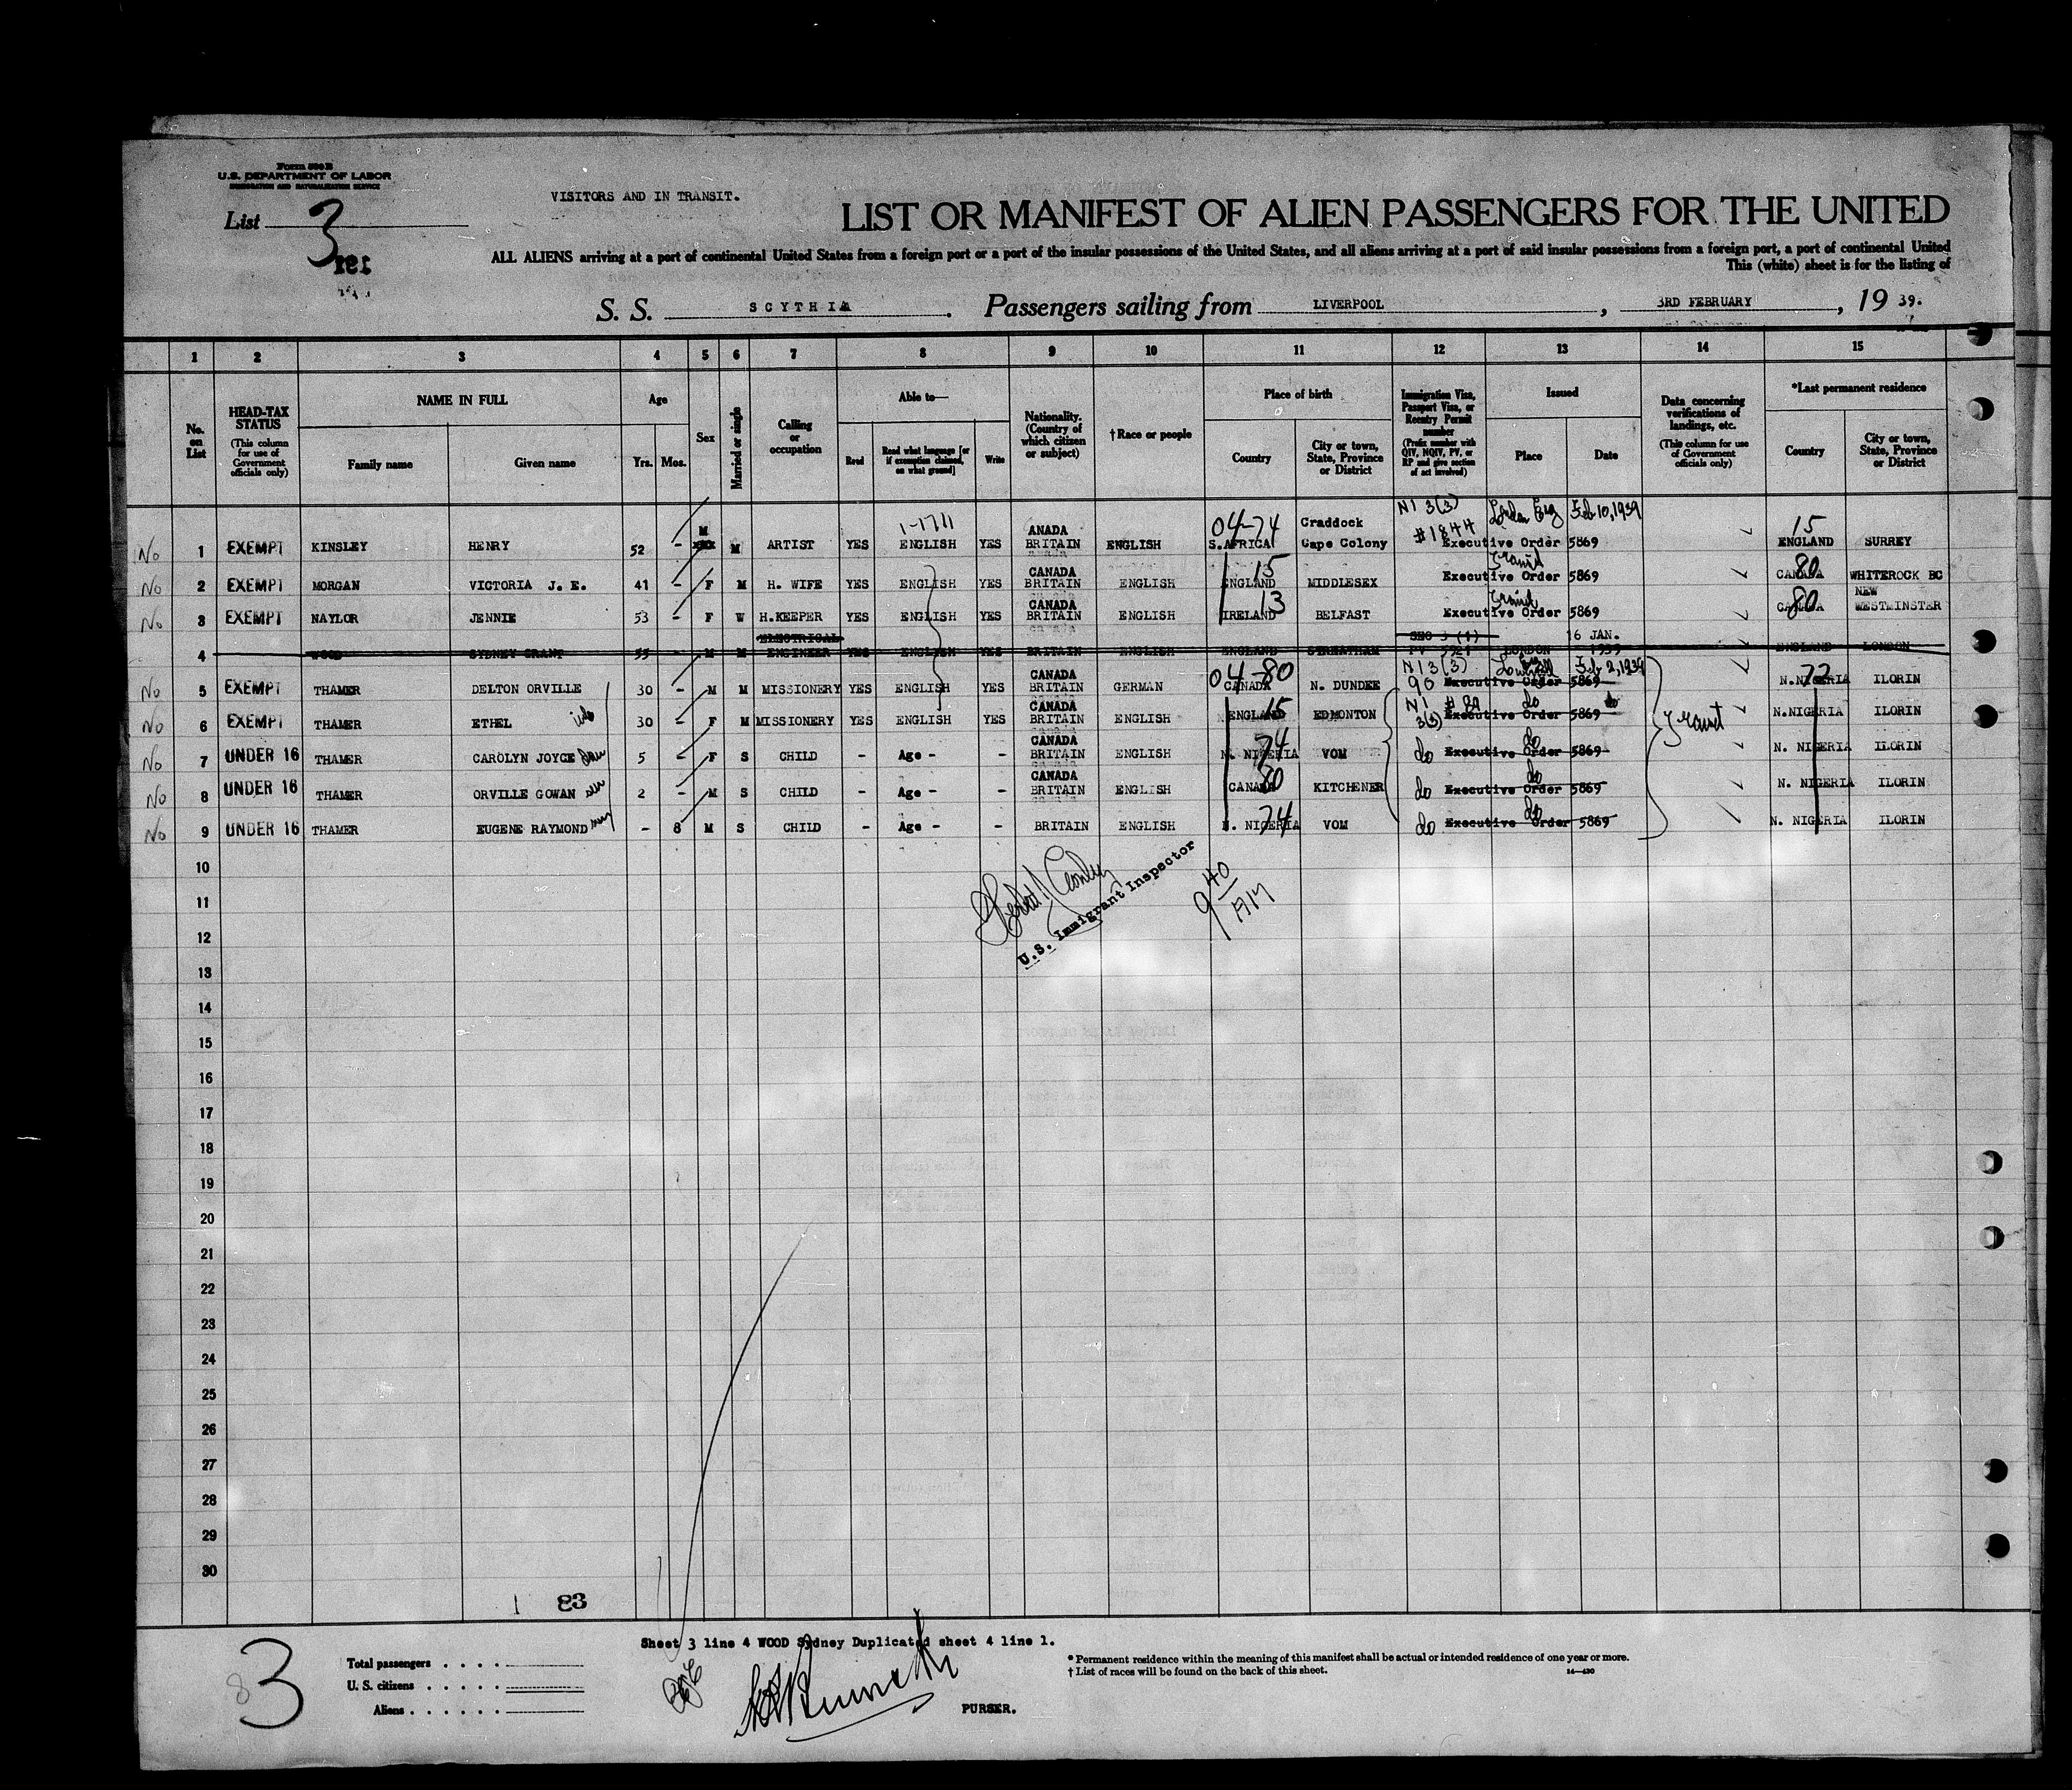 Form 500 B
U.S. DEPARTMENT OF LABOR
IMMIGRATION AND NATURALIZATION SERVICE
VISITORS AND IN TRANSIT.
List 3
LIST OR MANIFEST OF ALIEN PASSENGERS FOR THE UNITED
ALL ALIENS arriving at a port of continental United States from a foreign port or a port of the insular possessions of the United States, and all aliens arriving at a port of said insular possessions from a foreign port, a port of continental United
This (white) sheet is for the listing of
S. S. SCYTHIA. Passengers sailing from LIVERPOOL, 3RD FEBRUARY, 19 39.
1 2 3 4 5 6 7 8 9 10 11 12 13 14 15
No. on List
HEAD-TAX STATUS (This column for use of Government officials only)
NAME IN FULL Family name Given name
Age Yrs. Mos.
Sex
Married or single
Calling or occupation
Able to— Read Read what language [or if exemption claimed, on what ground] Write
Nationality. (Country of which citizen or subject)
†Race or people
Place of birth Country City or town, State, Province or District
Immigration Visa, Passport Visa, or Reentry Permit number (Prefix number with QIV, NQIV, PV, or RP and give section of act involved)
Issued Place Date
Data concerning verifications of landings, etc. (This column for use of Government officials only)
*Last permanent residence Country City or town, State, Province or District
M 1-1711 ANADA 04-74 Craddock N1 3(3) #1844 London Eng Feb 10, 1939 15
No 1 EXEMPT KINSLEY HENRY 52 - M ARTIST YES ENGLISH YES BRITAIN ENGLISH S.AFRICA Cape Colony Executive Order 5869 ENGLAND SURREY
CANADA 15 Transit 80
No 2 EXEMPT MORGAN VICTORIA J. E. 41 - F M H. WIFE YES ENGLISH YES BRITAIN ENGLISH ENGLAND MIDDLESEX Executive Order 5869 CANADA WHITEROCK BC
CANADA 13 Transit 80 NEW
No 3 EXEMPT NAYLOR JENNIE 53 - F W H.KEEPER YES ENGLISH YES BRITAIN ENGLISH IRELAND BELFAST Executive Order 5869 CANADA WESTMINSTER
ELECTRICAL SEC 3 (1) 16 JAN.
4 WOOD SYDNEY GRANT 55 M M ENGINEER YES ENGLISH YES BRITAIN ENGLISH ENGLAND STREATHAM PV 3921 LONDON 1939 ENGLAND LONDON
CANADA 04-80 N1 3(3) Feb 2, 1939 72
No 5 EXEMPT THAMER DELTON ORVILLE 30 - M M MISSIONERY YES ENGLISH YES BRITAIN GERMAN CANADA N. DUNDEE 90 Executive Order 5869 N.NIGERIA ILORIN
CANADA 15 N1 do do
No 6 EXEMPT THAMER ETHEL 30 - F M MISSIONERY YES ENGLISH YES BRITAIN ENGLISH ENGLAND EDMONTON 3(3) Executive Order 5869 Transit N.NIGERIA ILORIN
CANADA 74 do
No 7 UNDER 16 THAMER CAROLYN JOYCE 5 - F S CHILD - Age - - BRITAIN ENGLISH N. NIGERIA VOM do Executive Order 5869 N. NIGERIA ILORIN
CANADA 80 do
No 8 UNDER 16 THAMER ORVILLE GOWAN 2 - M S CHILD - Age - - BRITAIN ENGLISH CANADA KITCHENER do Executive Order 5869 N. NIGERIA ILORIN
74 do
No 9 UNDER 16 THAMER EUGENE RAYMOND - 8 M S CHILD - Age - - BRITAIN ENGLISH N. NIGERIA VOM do Executive Order 5869 N. NIGERIA ILORIN
10
U.S. Immigrant Inspector
9 40 AM
11
12
13
14
15
16
17
18
19
20
21
22
23
24
25
26
27
28
29
30
83
Sheet 3 line 4 WOOD Sydney Duplicated sheet 4 line 1.
83
Total passengers
U. S. citizens
Aliens
PURSER.
* Permanent residence within the meaning of this manifest shall be actual or intended residence of one year or more.
† List of races will be found on the back of this sheet.
14—430